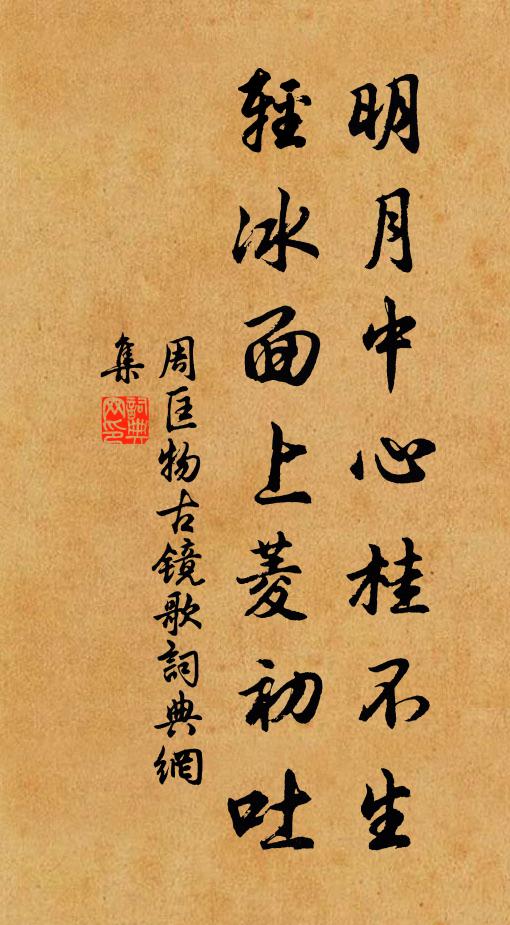 明月中心桂不生
輕冰面上菱初吐
周匡物古镜歌詞典網
集
詞典
网印